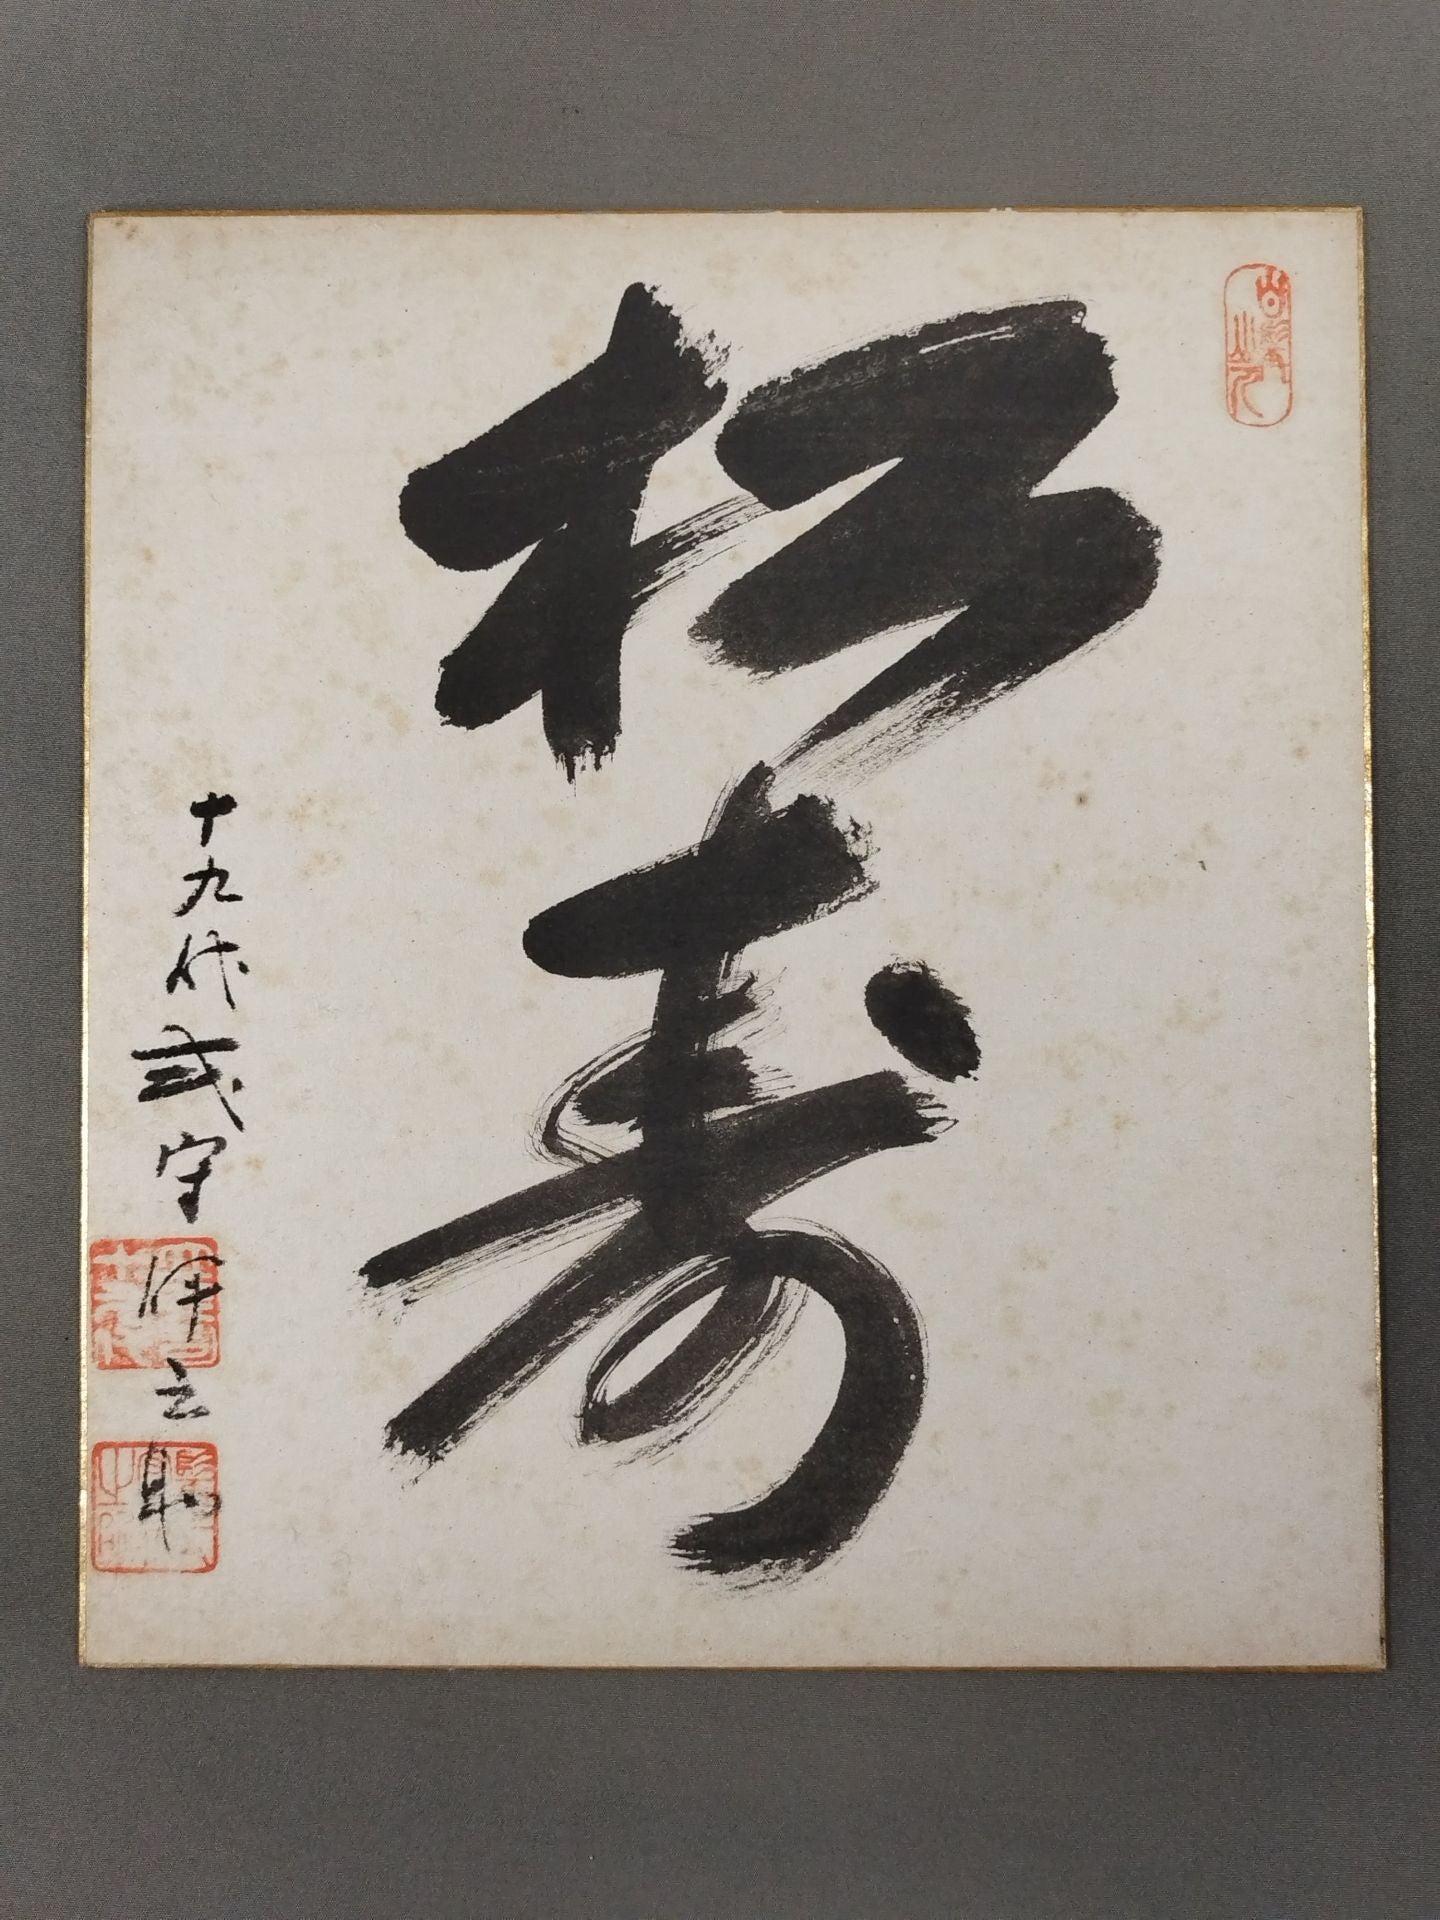 松寿
十九代式守伊之助